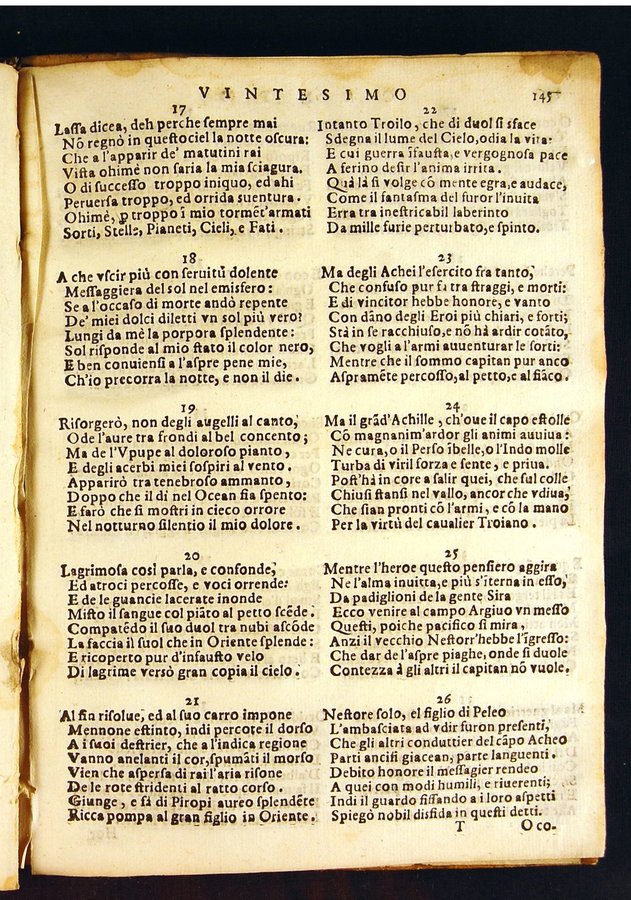 VINTESIMO
145
17
Lassa dicea, deh perche sempre mai
Nõ regnò in questo ciel la notte oscura:
Che a l'apparir de' matutini rai
Vista ohimè non saria la mia sciagura.
O di successo troppo iniquo, ed ahi
Peruersa troppo, ed orrida suentura.
Ohimè, ꝑ troppo ĩ mio tormẽt'armati
Sorti, Stelle, Pianeti, Cieli, e Fati.
18
A che vscir più con seruitù dolente
Messaggiera del sol nel emisfero:
Se a l'occaso di morte andò repente
De' miei dolci diletti vn sol più vero?
Lungi da mè la porpora splendente:
Sol risponde al mio stato il color nero,
E ben conuiensi a l'aspre pene mie,
Ch'io precorra la notte, e non il die.
19
Risorgerò, non degli augelli al canto,
Ode l'aure tra frondi al bel concento;
Ma de l'Vpupe al doloroso pianto,
E degli acerbi miei sospiri al vento.
Apparirò tra tenebroso ammanto,
Doppo che il dì nel Ocean sia spento:
E farò che si mostri in cieco orrore
Nel notturno silentio il mio dolore.
20
Lagrimosa così parla, e confonde,
Ed atroci percosse, e voci orrende:
E de le guancie lacerate inonde
Misto il sangue col piãto al petto scẽde.
Compatẽdo il suo duol tra nubi ascõde
La faccia il suol che in Oriente splende:
E ricoperto pur d'infausto velo
Di lagrime versò gran copia il cielo.
21
Al fin risolue, ed al suo carro impone
Mennone estinto, indi percote il dorso
A i suoi destrier, che a l'indica regione
Vanno anelanti il cor, spumãti il morso
Vien che aspersa di rai l'aria risone
De le rote stridenti al ratto corso.
Giunge, e fà di Piropi aureo splendẽte
Ricca pompa al gran figlio in Oriente.
22
Intanto Troilo, che di duol si sface
Sdegna il lume del Cielo, odia la vita:
E cui guerra ĩfausta, e vergognosa pace
A ferino desir l'anima irrita.
Quà là si volge cõ mente egra, e audace,
Come il fantasma del furor l'inuita
Erra tra inestricabil laberinto
Da mille furie perturbato, e spinto.
23
Ma degli Achei l'esercito fra tanto,
Che confuso pur fa tra straggi, e morti:
E di vincitor hebbe honore, e vanto
Con dãno degli Eroi più chiari, e forti;
Stà in se racchiuso, e nõ hà ardir cotãto,
Che vogli a l'armi auuenturar le sorti:
Mentre che il sommo capitan pur anco
Aspramẽte percosso, al petto, e al fiãco.
24
Ma il grãd'Achille, ch'oue il capo estolle
Cõ magnanim'ardor gli animi auuiua:
Ne cura, o il Perso ĩbelle, o l'Indo molle
Turba di viril forza e sente, e priua.
Post'hà in core a salir quei, che sul colle
Chiusi stansi nel vallo, ancor che vdiua,
Che sian pronti cõ l'armi, e cõ la mano
Per la virtù del caualier Troiano.
25
Mentre l'heroe questo pensiero aggira
Ne l'alma inuitta, e più s'ĩterna in esso,
Da padiglioni de la gente Sira
Ecco venire al campo Argiuo vn messo
Questi, poiche pacifico si mira,
Anzi il vecchio Nestorr'hebbe l'ĩgresso:
Che dar de l'aspre piaghe, onde si duole
Contezza à gli altri il capitan nõ vuole.
26
Nestore solo, el figlio di Peleo
L'ambasciata ad vdir furon presenti,
Che gli altri conduttier del cãpo Acheo
Parti ancisi giacean, parte languenti.
Debito honore il messagier rendeo
A quei con modi humili, e riuerenti;
Indi il guardo fissando a i loro aspetti
Spiegò nobil disfida in questi detti.
T
O co-